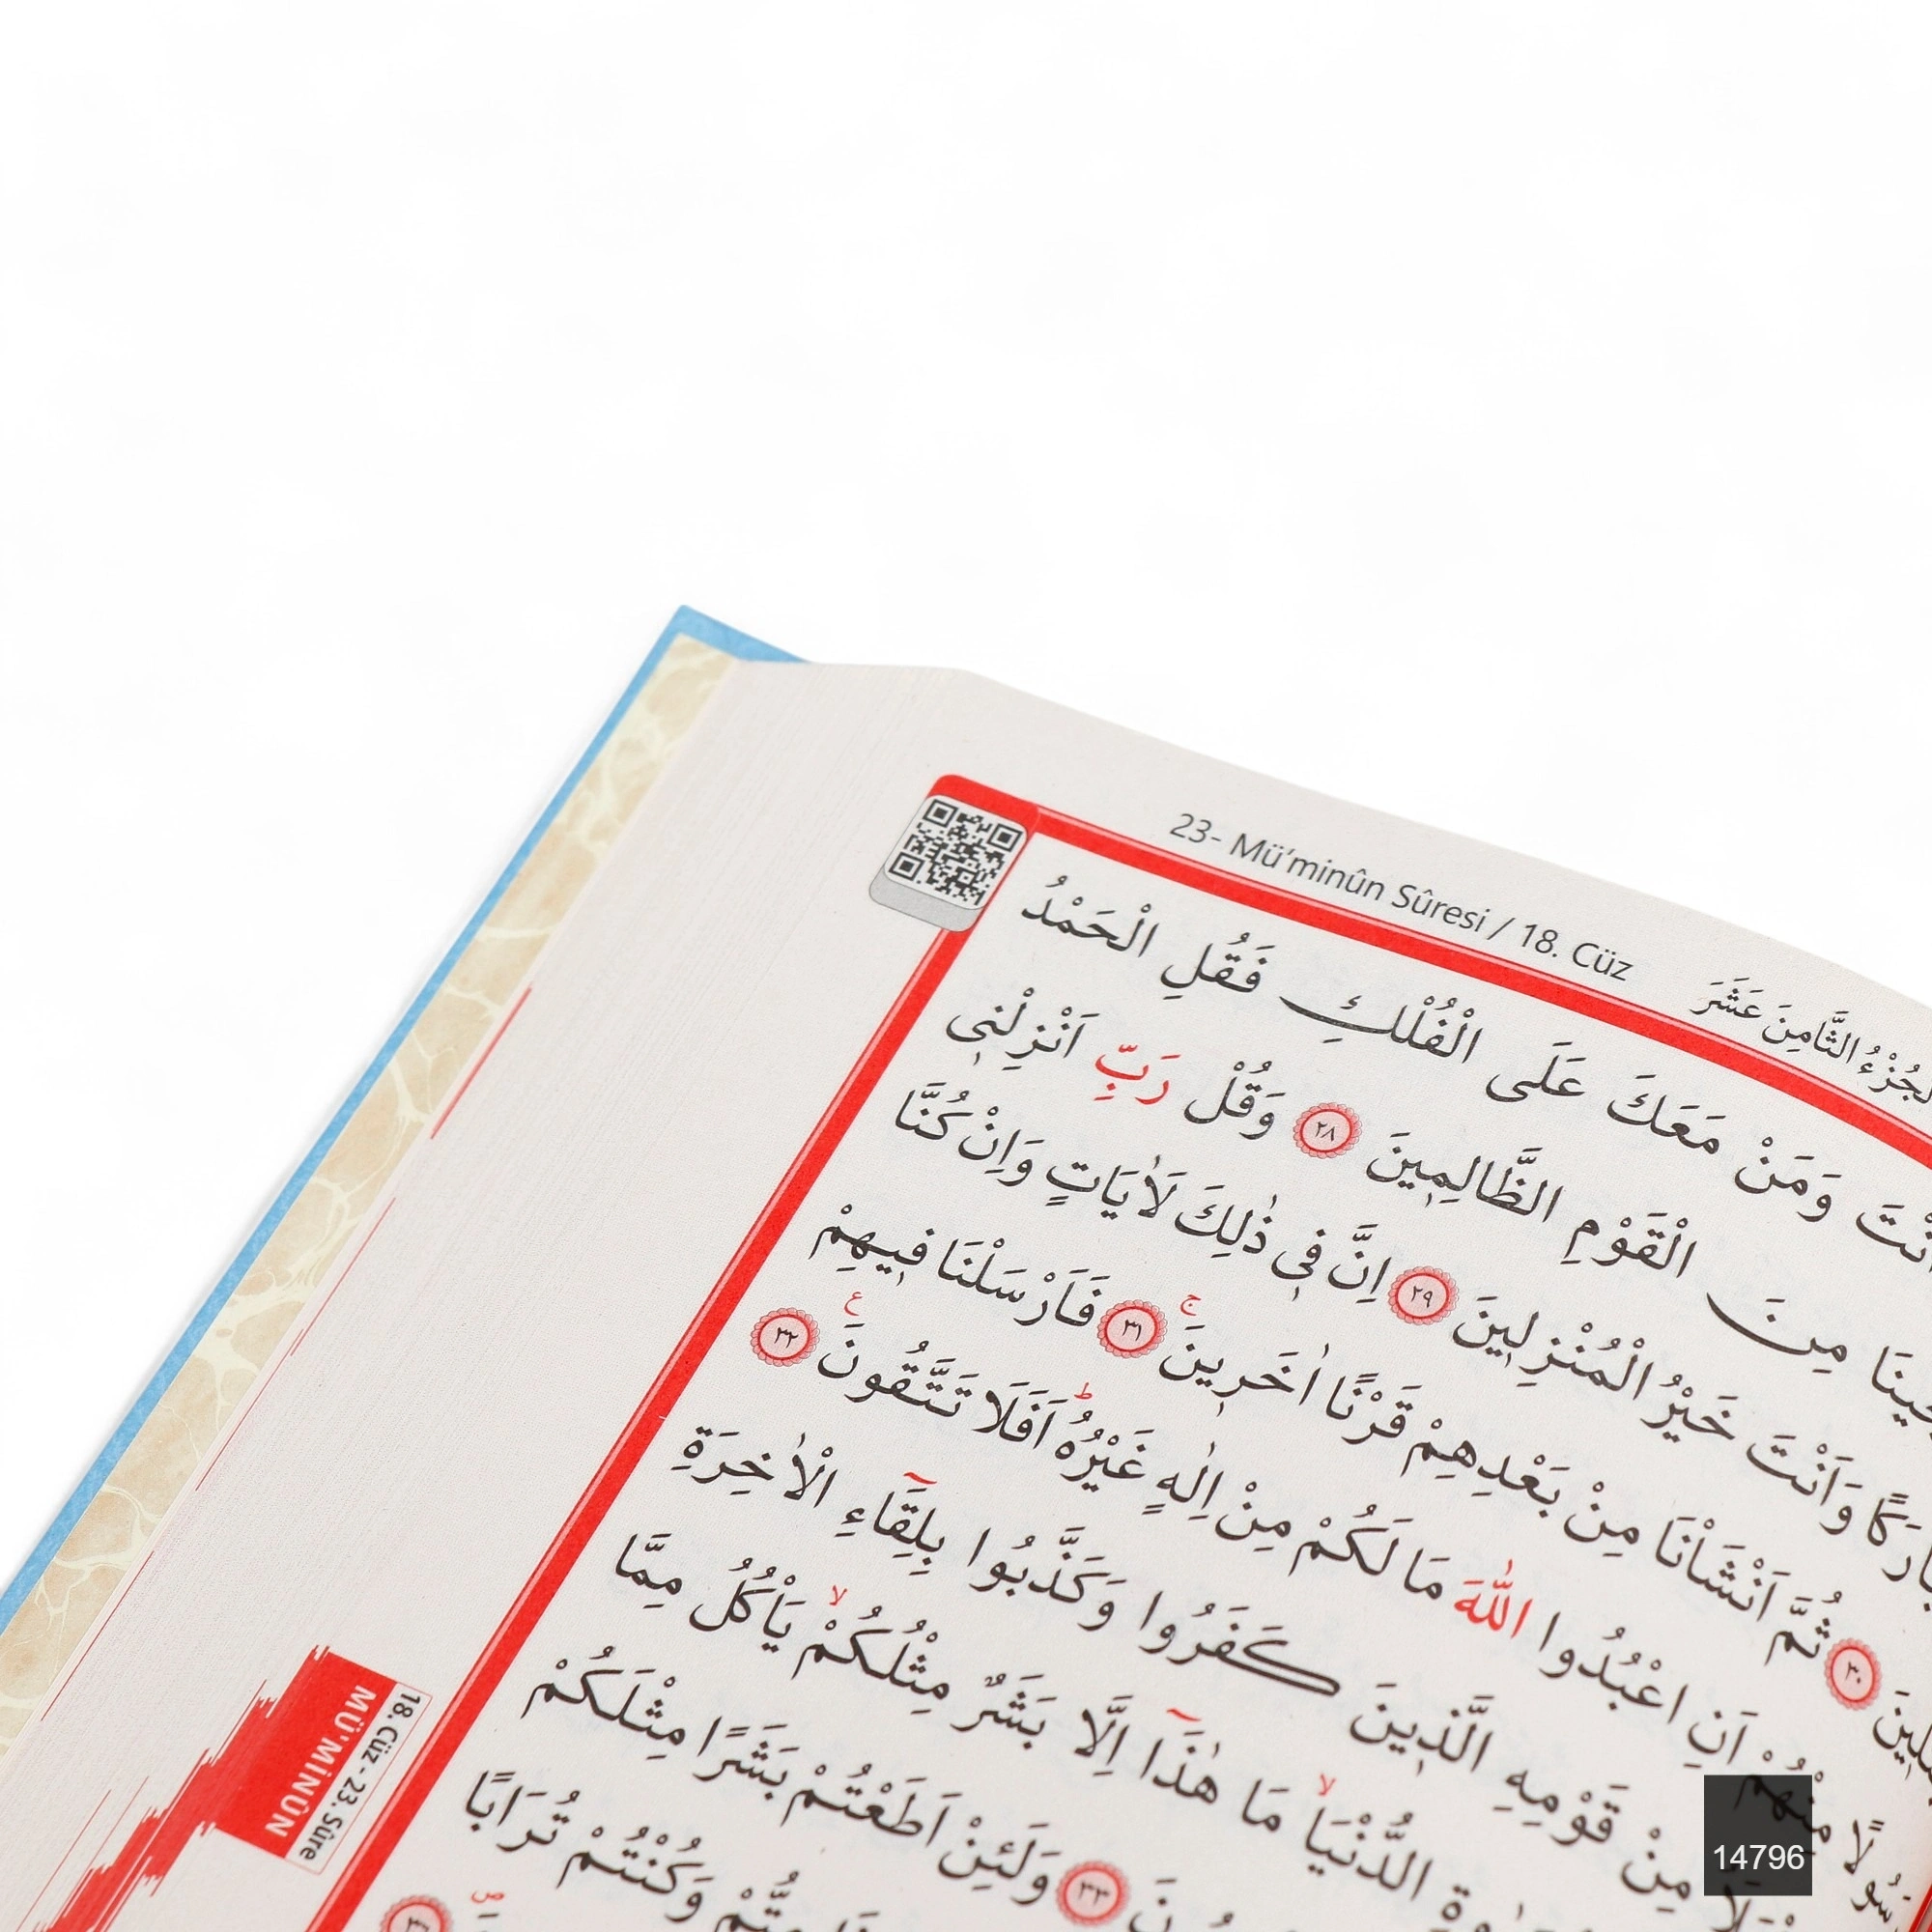 23- Mü'minûn Sûresi / 18. Cüz
اَلْجُزْءُ الثَّامِنَ عَشَرَ
وَمَنْ مَعَكَ عَلَى الْفُلْكِ فَقُلِ الْحَمْدُ
مِنَ الْقَوْمِ الظَّالِمِينَ ٢٨ وَقُلْ رَبِّ اَنْزِلْنِي
وَاَنْتَ خَيْرُ الْمُنْزِلِينَ ٢٩ اِنَّ فِي ذٰلِكَ لَاٰيَاتٍ وَاِنْ كُنَّا
٣٠ ثُمَّ اَنْشَاْنَا مِنْ بَعْدِهِمْ قَرْنًا اٰخَرِينَۚ ٣١ فَاَرْسَلْنَا فِيهِمْ
مِنْهُمْ اَنِ اعْبُدُوا اللّٰهَ مَا لَكُمْ مِنْ اِلٰهٍ غَيْرُهُۜ اَفَلَا تَتَّقُونَ ٣٢
مِنْ قَوْمِهِ الَّذِينَ كَفَرُوا وَكَذَّبُوا بِلِقَٓاءِ الْاٰخِرَةِ
الدُّنْيَاۙ مَا هٰذَٓا اِلَّا بَشَرٌ مِثْلُكُمْۙ يَاْكُلُ مِمَّا
٣٣ وَلَئِنْ اَطَعْتُمْ بَشَرًا مِثْلَكُمْ
وَكُنْتُمْ تُرَابًا
18. Cüz - 23. Sûre
MÜ'MİNÛN
14796